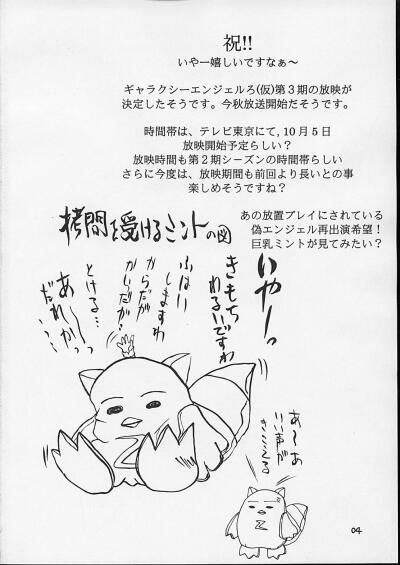 祝!!
いやー嬉しいですなぁ～
ギャラクシーエンジェルろ(仮)第３期の放映が
決定したそうです。今秋放送開始だそうです。
時間帯は、テレビ東京にて, 10月５日
放映開始予定らしい？
放映時間も第２期シーズンの時間帯らしい
さらに今度は、放映期間も前回より長いとの事
楽しめそうですね？
あの放置プレイにされている
偽エンジェル再出演希望！
巨乳ミントが見てみたい？
拷問を受けるミントの図
いやーっ
きもち
わるいですわ
ふはい
しますわ
からだが
かいだが!
とける…
あ～っ
だれかっ…
あ～あ
いい声が
きこえる
Z
Z
04